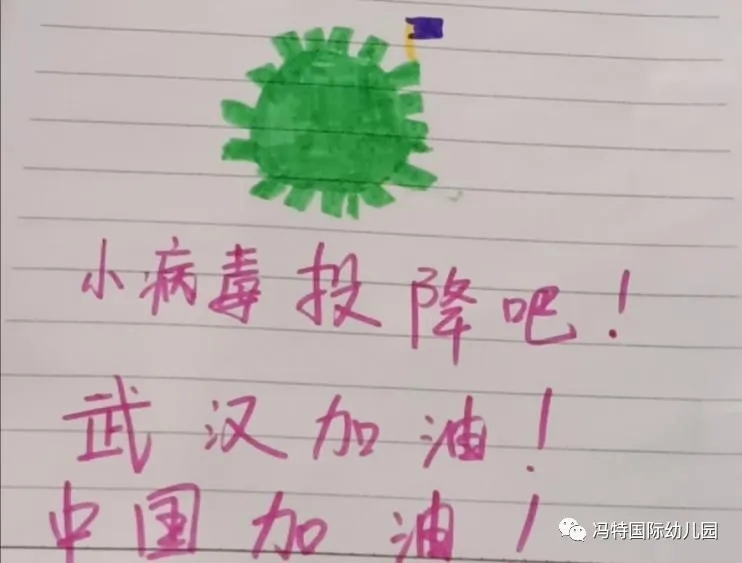 小病毒投降吧！
武汉加油！
中国加油！
冯特国际幼儿园